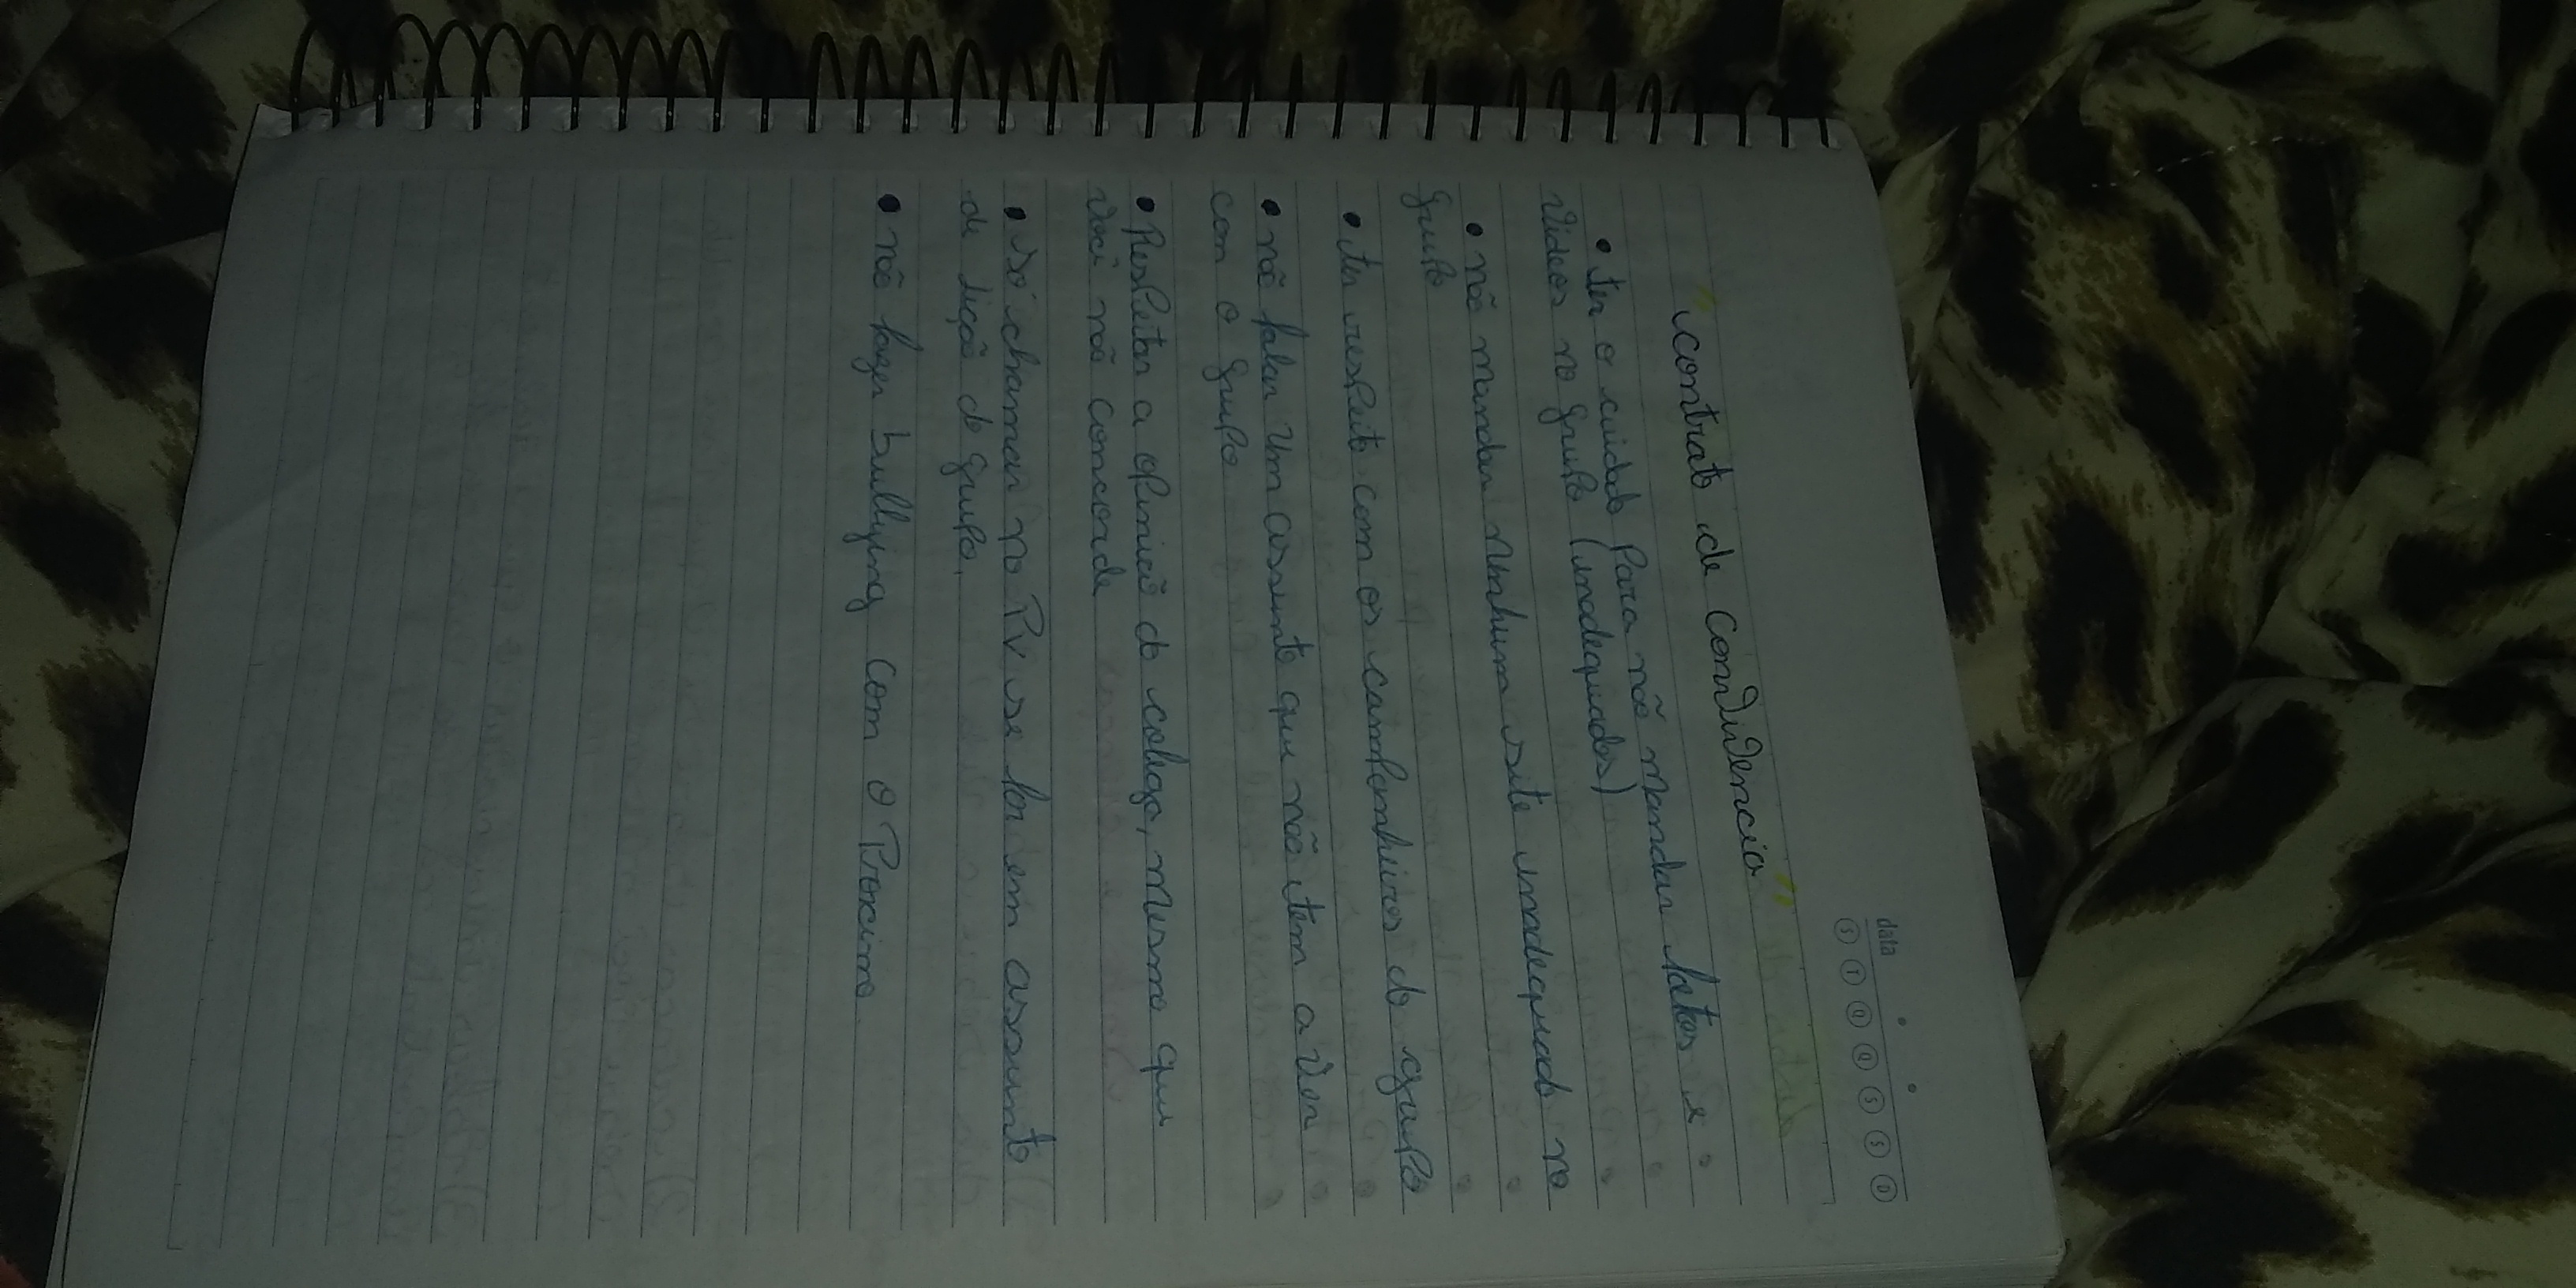 data
S T Q Q S S D
"contrato de condivencia"
• ter o cuidado Para não mandar fotos e
videos no grupo (inadequados)
• não mandar nenhum site inadequado no
grupo
• ter respeito com os companheiros do grupo
• não falar um assunto que não tem a ver
com o grupo
• Respeitar a opinião do colega, mesmo que
você não concorde
• só chamar no Pv se for em assunto
de liçâo do grupo.
• não fazer bullying com o Proximo.